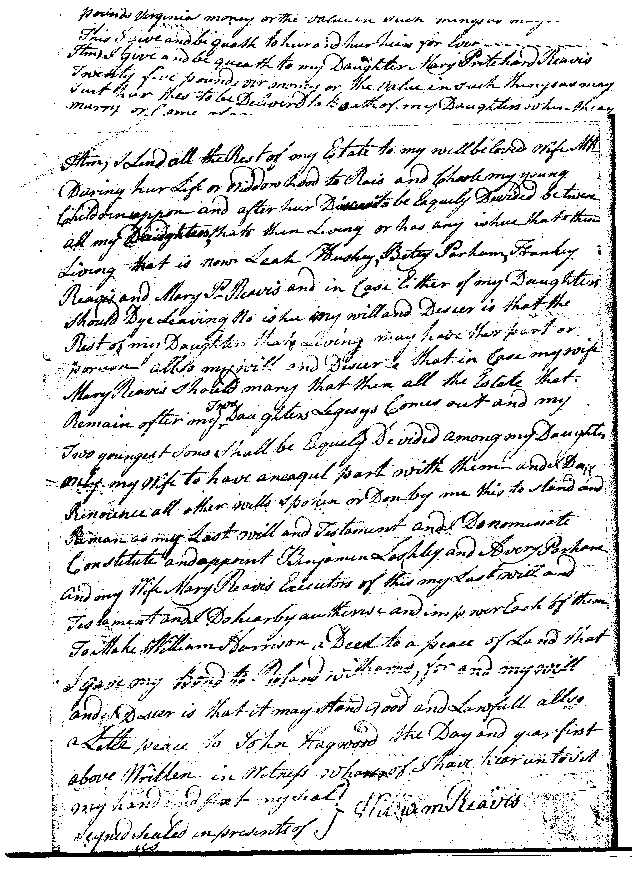 pounds Virginia money or the value in such things as may
This I give and bequath to hur and hur heirs for Ever
Itm, I give and be queath to my Daughter Mary Pritchard Reavis
Twenty five pounds vir money or the value in such things as may
Suit hur thes to be Delivered to Each of my Daughters when they
marry or Come of
Itm, I Lend all the Rest of my Estate to my well beloved Wife
During hur Life or widdowhood to Rais and Chool my young
Children uppon and after hur to be Equely Devided between
all my Daughters thats then Living or has any ishue thats then
Living that is now Leah Hushy, Betty Parham, Frankey
Reavis and Mary Pr Reavis and in Case Either of my Daughters
Should Dye Leaving No ishue my will and Deseer is that the
Rest of my Daughters thats Living may have thar part or
allso my will and Deseer is that in Case my wife
Mary Reavis Should marry that then all the Estate that
Remain after my Two Daughters Legasys Comes out and my
Two youngest Sons Shall be Equely Devided among my Daughters
only my Wife to have an eaqul part with them and I Do
Rinounce all other wills Spoken or Don by me this to Stand and
Reman as my Last will and Testament and I Donomenate
Constitute and appoint Benjamin Lashley and Avery Parham
and my Wife Mary Reavis Executors of this my Last will and
Testament and I Do hearby autherise and impower Each of them
To Make William Harrison a Deed to a peace of Land that
I gave my Bond to Roland Williams, for and my will
and Deseer is that it may Stand good and Lawfull allso
a Little peace to John Hagwood the Day and year first
above Written in Witness whareof I have hear unto Set
my hand and fixt my seal
William Reavis
Signed Sealed in presents of